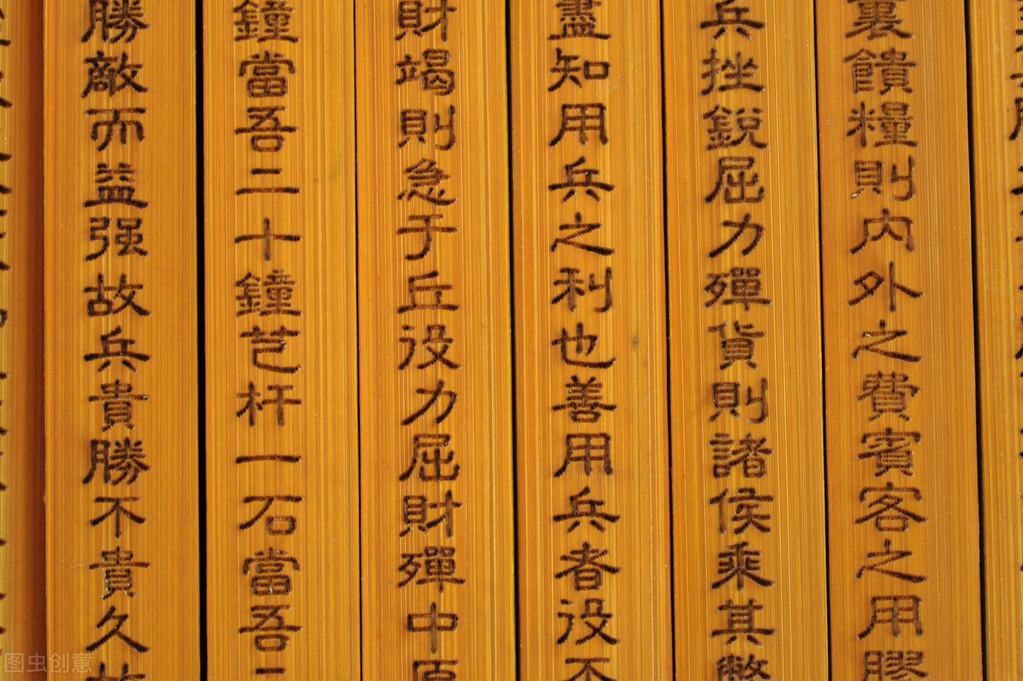 裏饋糧則内外之費賓客之用膠
兵挫銳屈力殫貨則諸侯乘其
盡知用兵之利也善用兵者役不
財竭則急于丘役力屈財殫中原
鐘當吾二十鐘芑杆一石當吾二
勝敵而益强故兵貴勝不貴久故
图虫创意